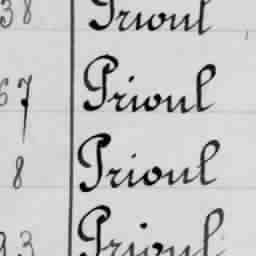 38 Prioul
67 Prioul
8 Prioul
93 Prioul